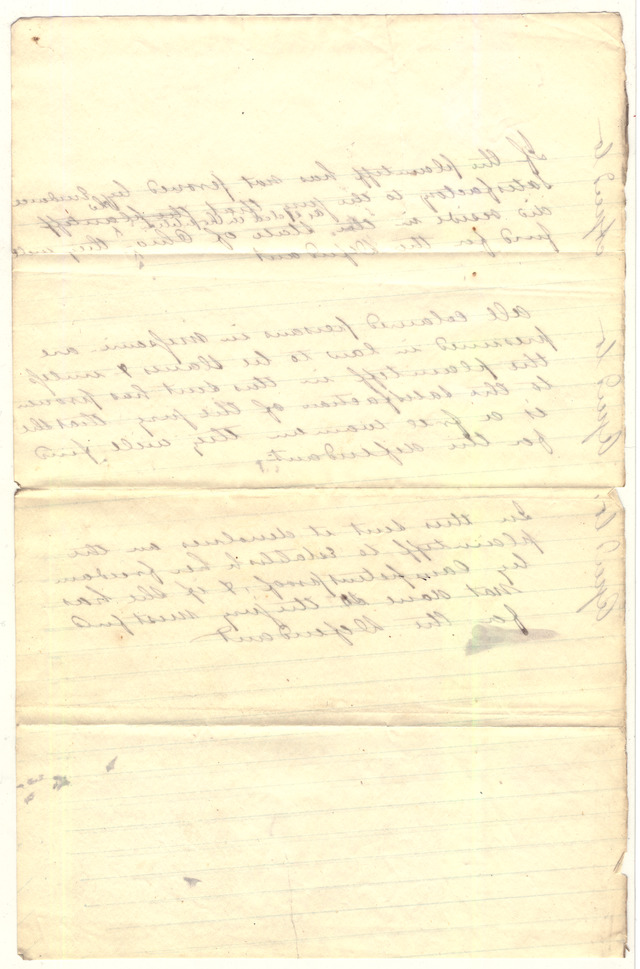 If the plaintiff has not proved by evidence
satisfactory to the jury that the plaintiff
did reside in the State of Ohio, they will
find for the Defendant
All colored persons in Missouri are
presumed in law to be slaves & unless
the plaintiff in this suit has proven
to the satisfaction of the jury that she
is a free woman they will find
for the defendant,
In this suit it devolves on the
plaintiff to establish her freedom
by competent proof, & if she has
not done so the jury must find
for the Defendant